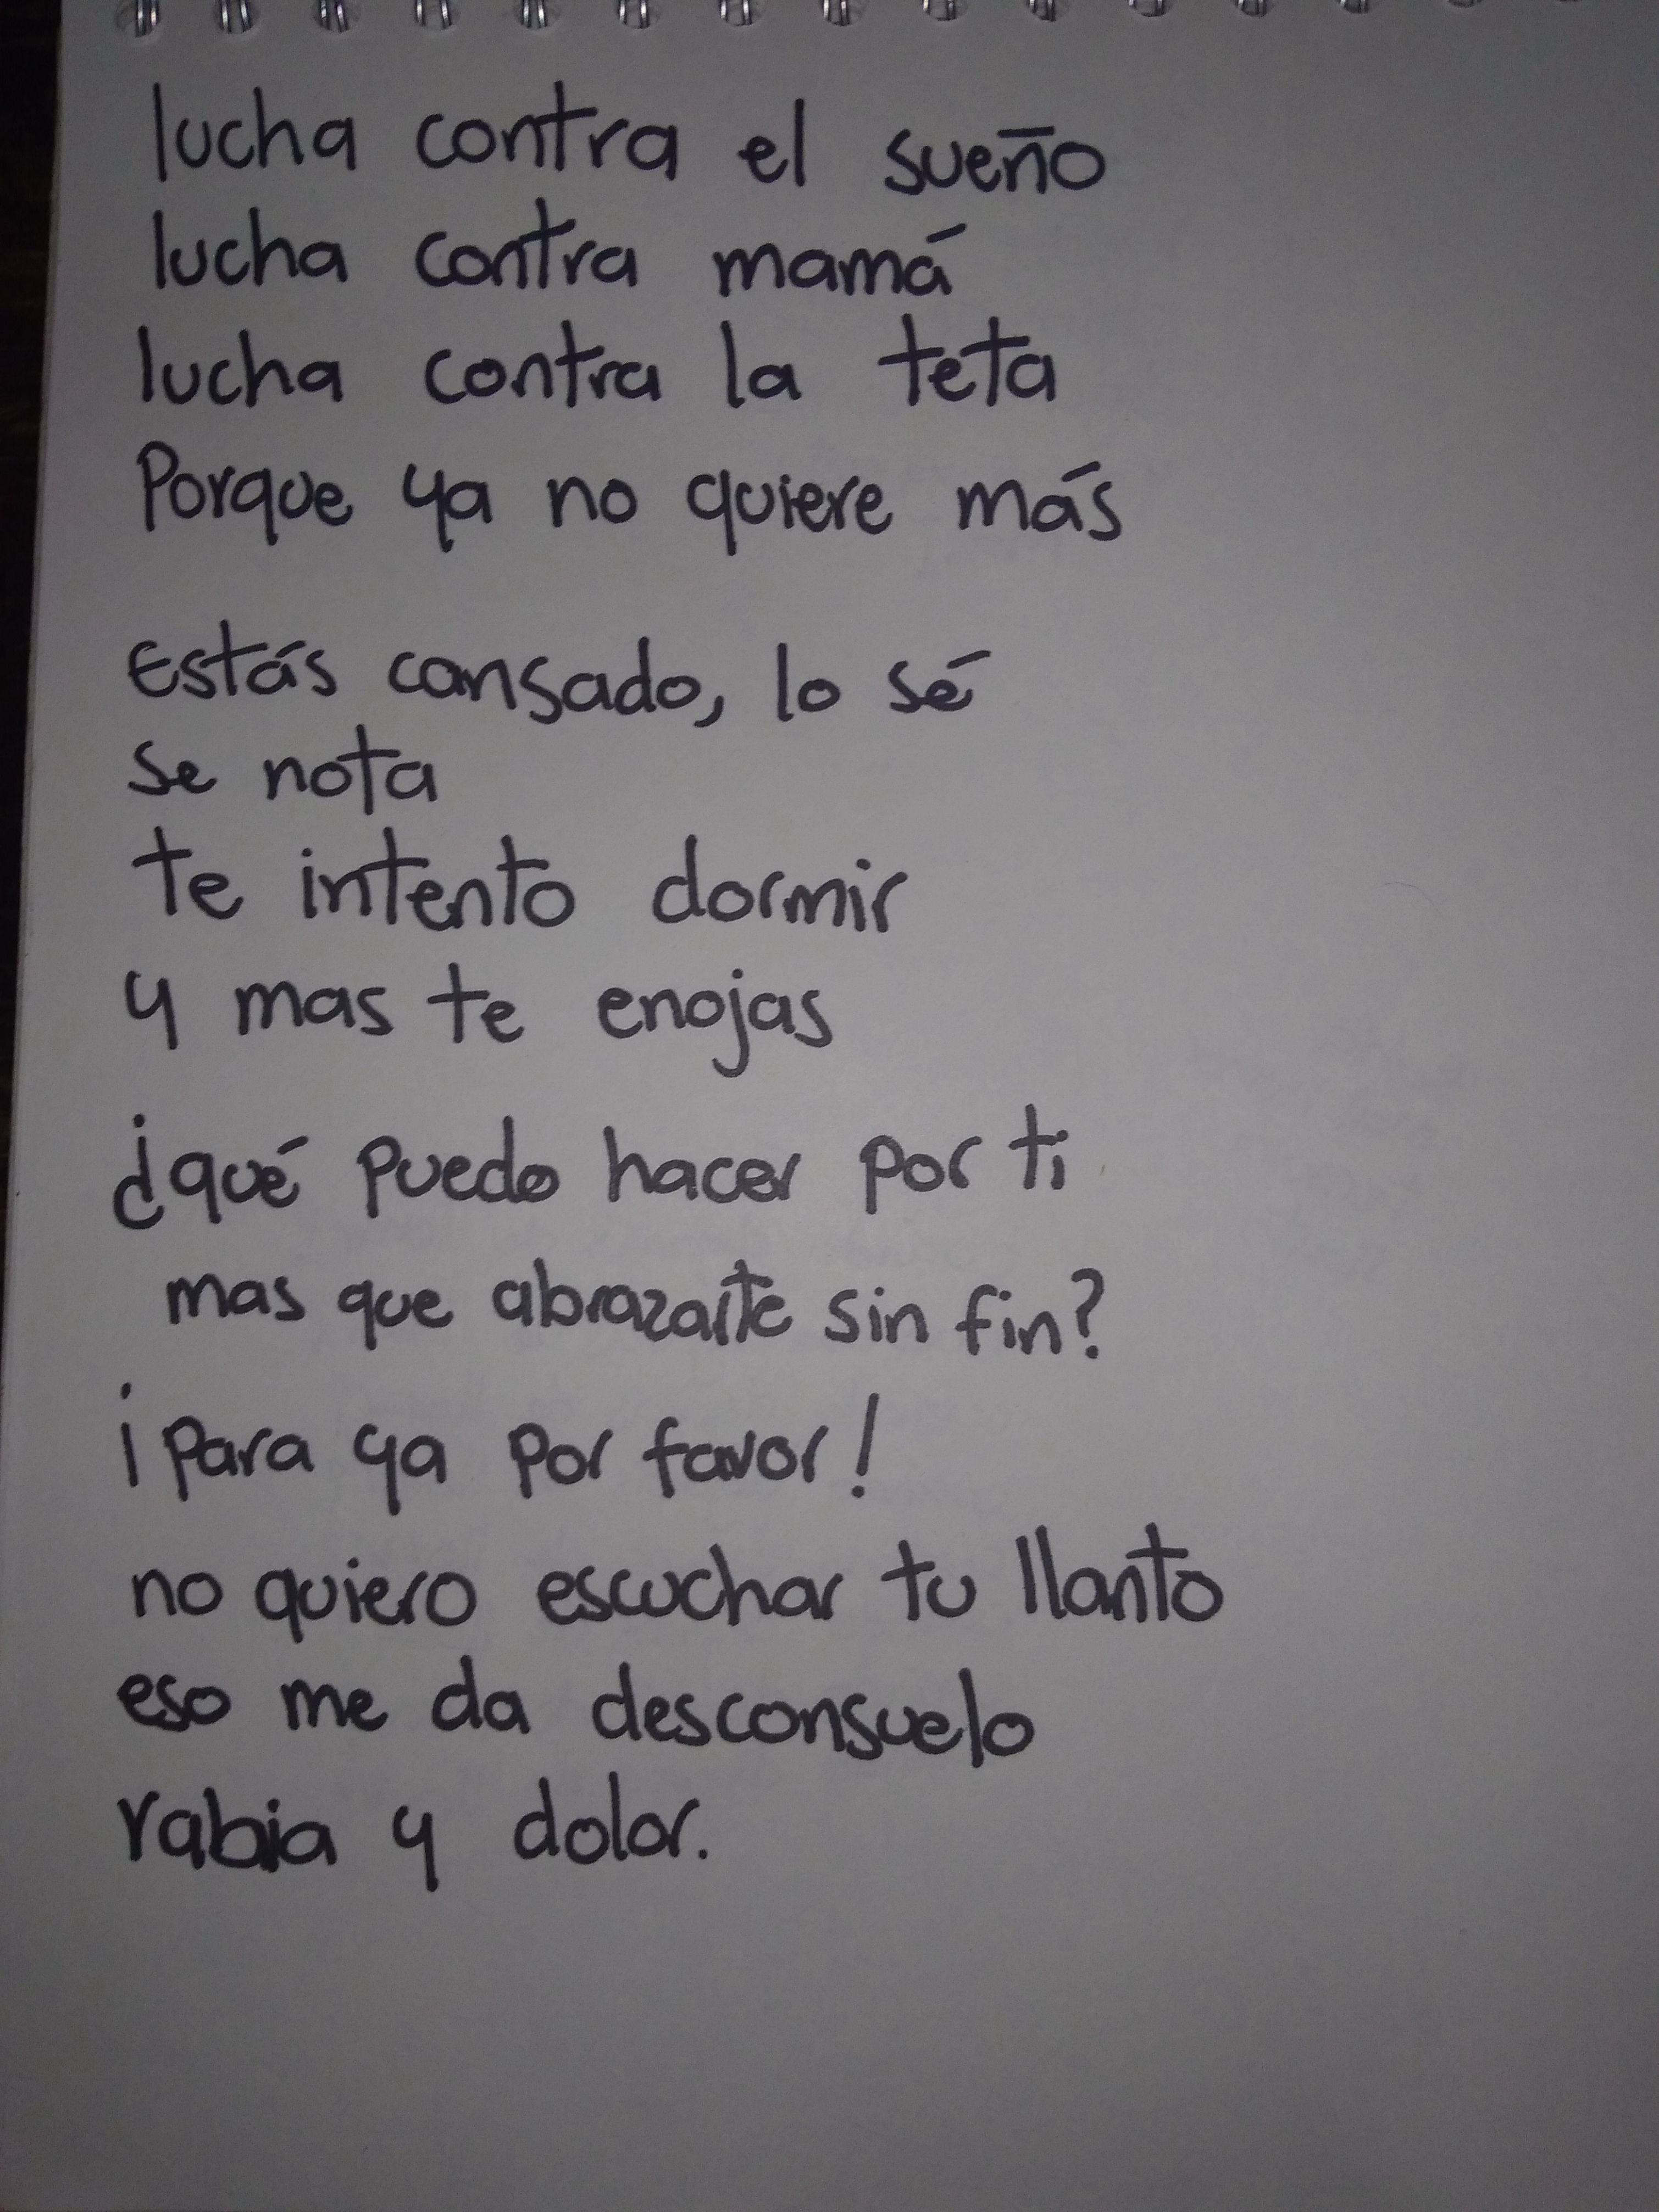 lucha contra el sueño
lucha contra mamá
lucha contra la teta
Porque ya no quiere más
Estás cansado, lo sé
se nota
te intento dormir
y mas te enojas
¿qué puedo hacer por ti
mas que abrazarte sin fin?
¡para ya por favor!
no quiero escuchar tu llanto
eso me da desconsuelo
rabia y dolor.